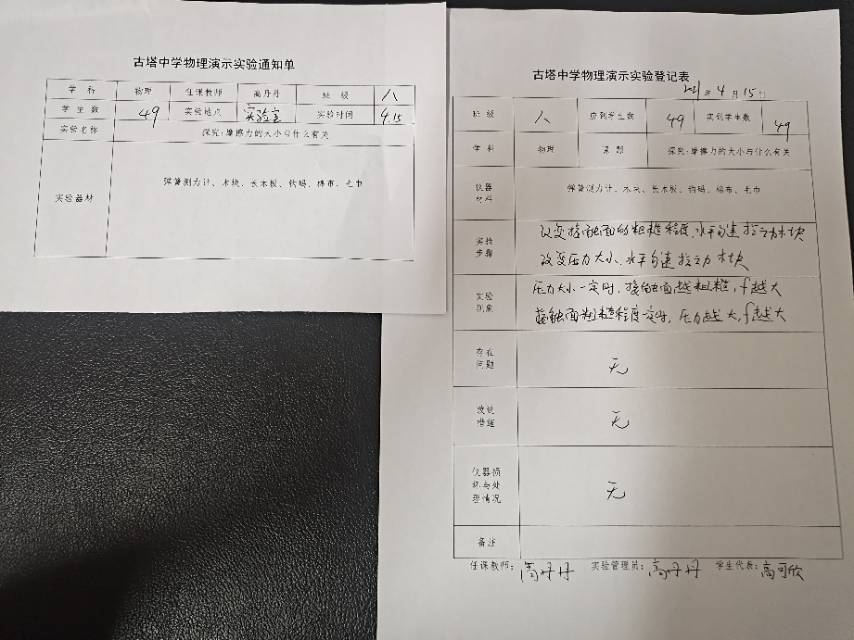 古塔中学物理演示实验通知单
学科 物理 任课教师 高丹丹 班级 八
学生数 49 实验地点 实验室 实验时间 4.15
实验名称 探究:摩擦力的大小与什么有关
实验器材 弹簧测力计、木块、长木板、钩码、棉布、毛巾
古塔中学物理演示实验登记表
2021年4月15日
班级 八 应到学生数 49 实到学生数 49
学科 物理 课题 探究:摩擦力的大小与什么有关
仪器材料 弹簧测力计、木块、长木板、钩码、棉布、毛巾
实验步骤 改变接触面的粗糙程度,水平匀速拉动木块
改变压力大小,水平匀速拉动木块
实验现象 压力大小一定时,接触面越粗糙,f越大
接触面粗糙程度一定时,压力越大,f越大
存在问题 无
改进措施 无
仪器损坏与处理情况 无
备注
任课教师:高丹丹 实验管理员:高丹丹 学生代表:高可欣